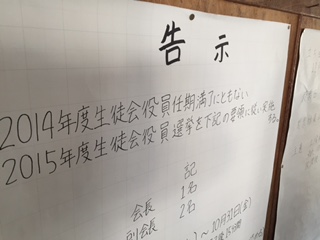 告示
2014年度生徒会役員任期満了にともない
2015年度生徒会役員選挙を下記の要領に従い実施
する。
記
会長 1名
副会長 2名
～10月31日(金)